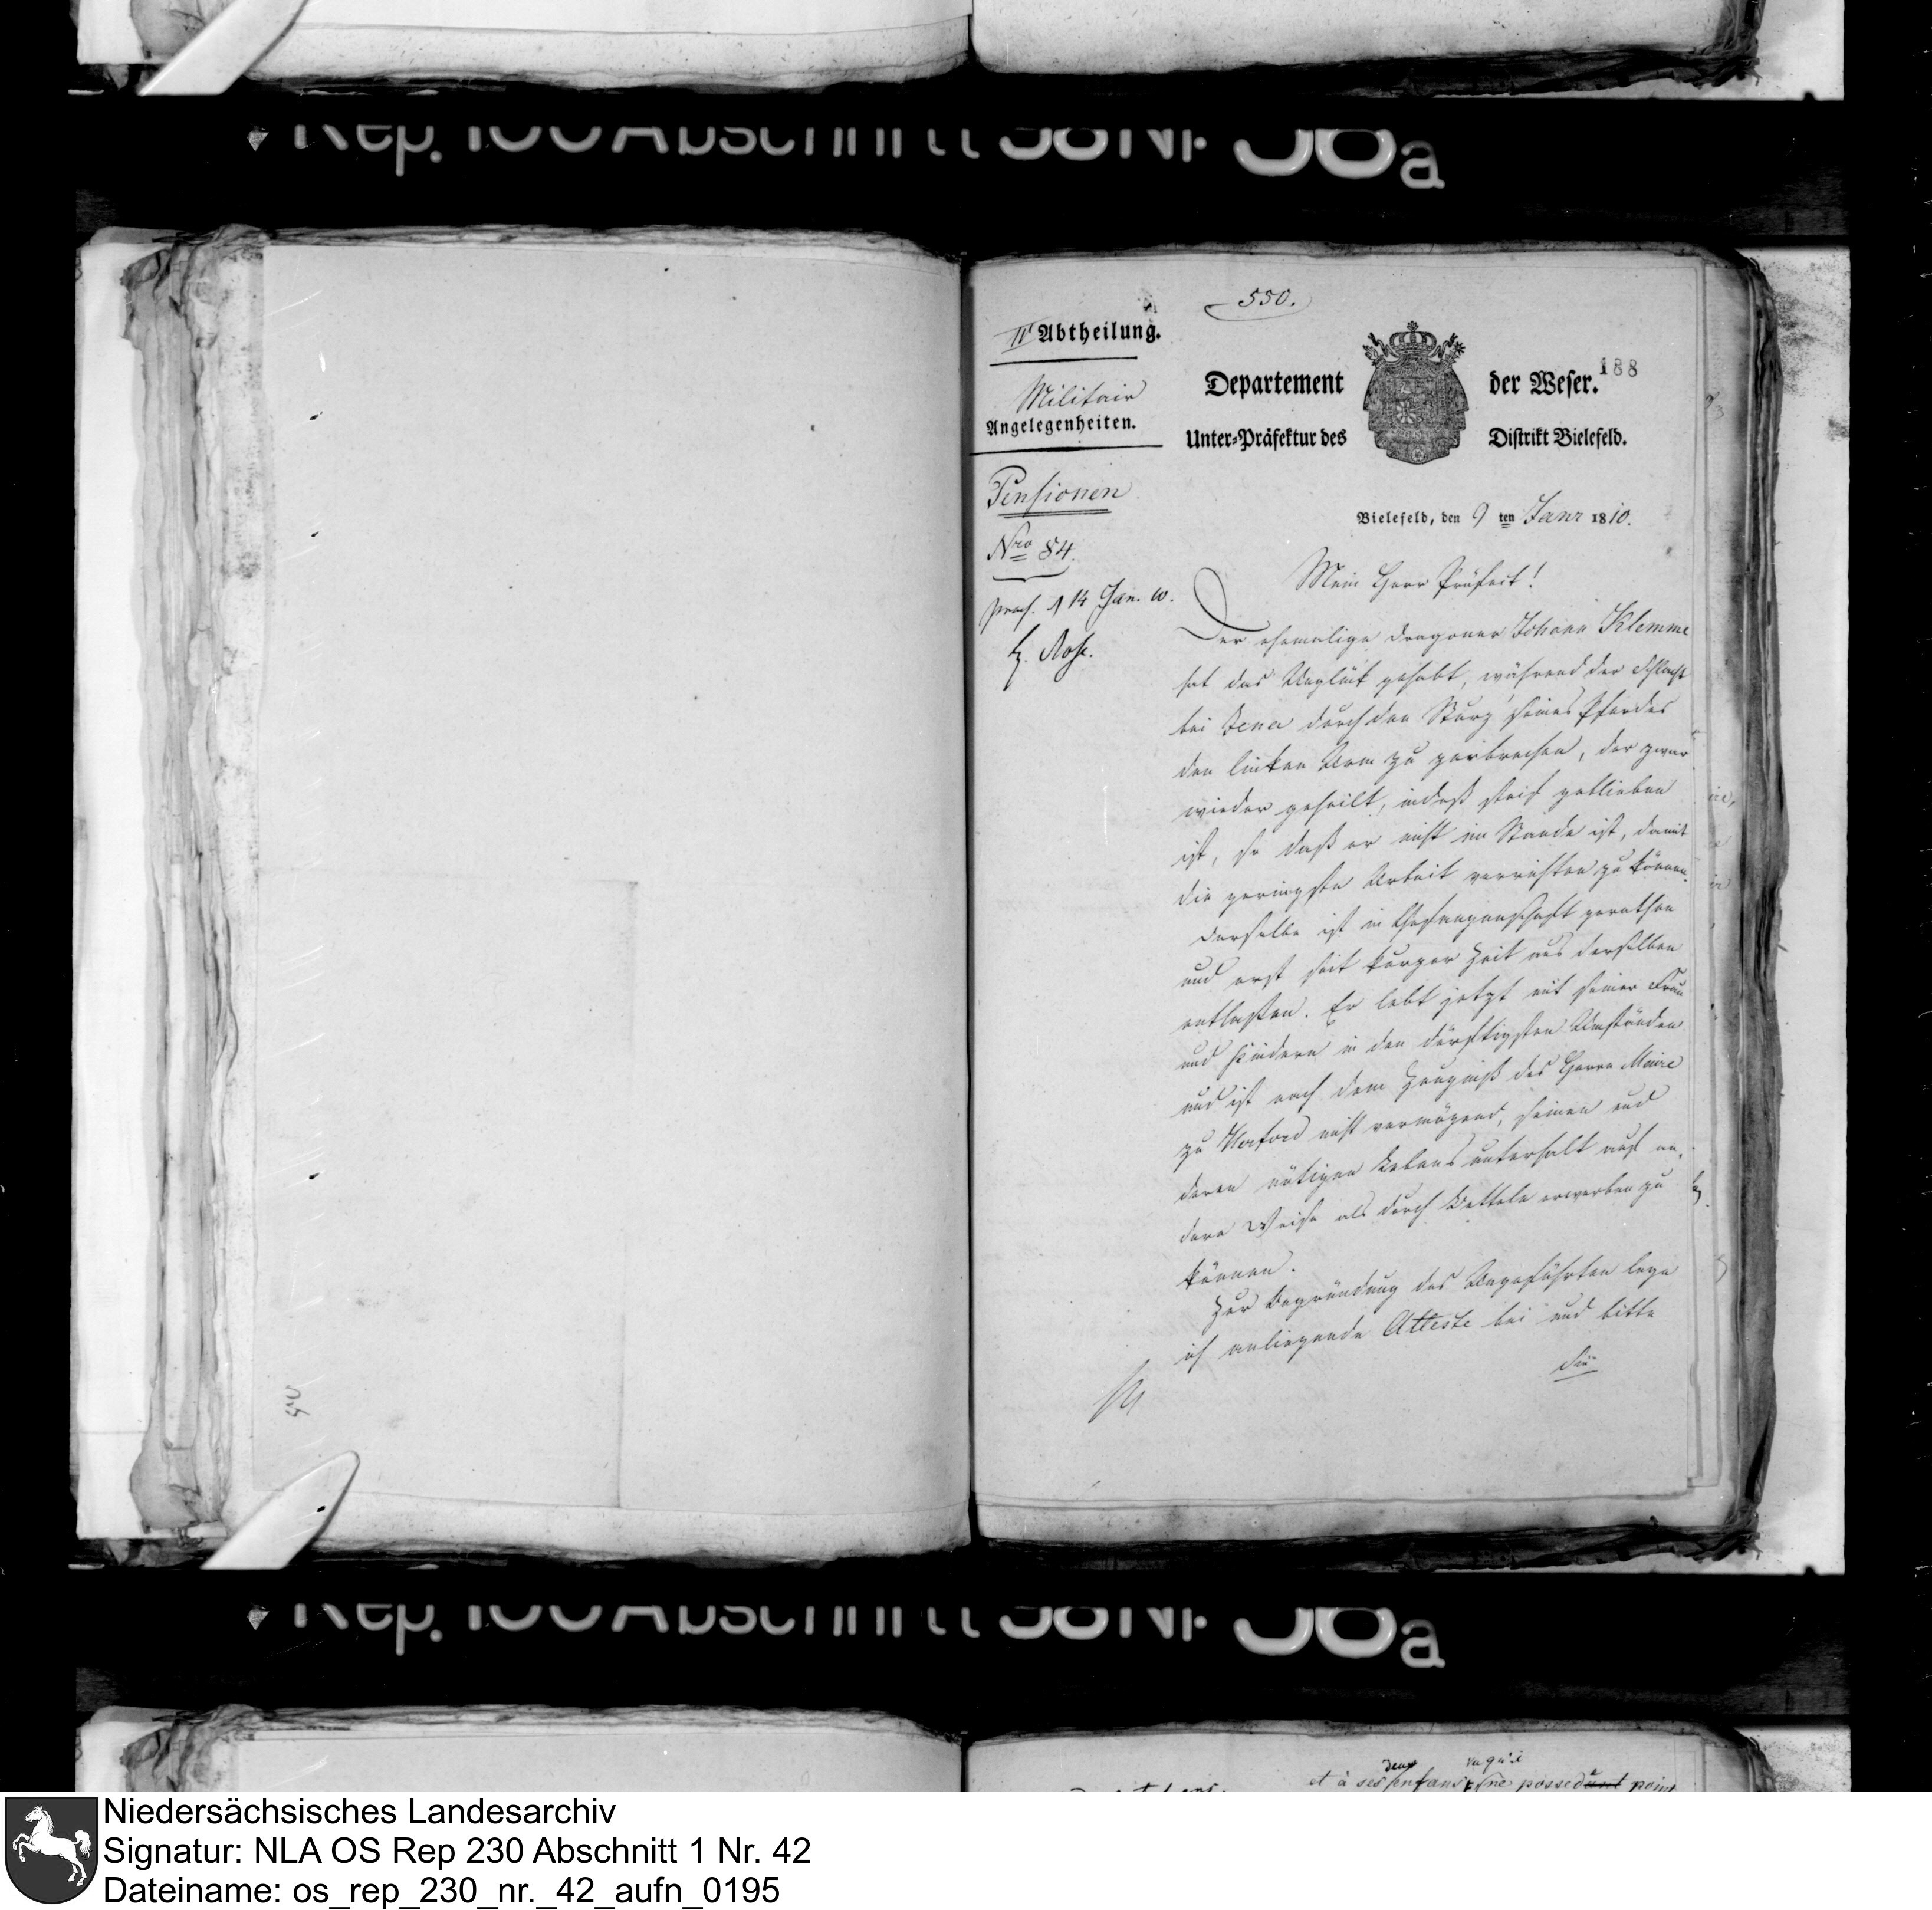 Rep. 100 Abschnitt 58 Nr. 38a
550.
II Abtheilung.
Militair
Angelegenheiten.
Pensionen
Nro 84.
praes. d 14 Jan. 10.
Departement der Weser.
188
Unter=Präfektur des Distrikt Bielefeld.
Bielefeld, den 9 ten Janr 1810.
Mein Herr Präfect!
Der ehemalige Dragoner Johann Klemme
hat das Unglük gehabt, während der Schlacht
bei Jena durch den Sturz seines Pferdes
den linken Arm zu zerbrechen, der zwar
wieder geheilt, indeß steif geblieben
ist, so daß er nicht im Stande ist, damit
die geringste Arbeit verrichten zu können.
Derselbe ist in Gefangenschaft gerathen
und erst seit kurzer Zeit aus derselben
entlaßen. Er lebt jetzt mit seiner Frau
und Kindern in den dürftigsten Umständen
und ist nach dem Zeugniß des Herrn Maire
zu Herford nicht vermögend, seinen und
deren nötigen Lebensunterhalt auf an,
dere Weise als durch Betteln erwerben zu
können.
Zur Begründung des Angeführten lege
ich anliegende Atteste bei und bitte
Sie
Rep. 100 Abschnitt 58 Nr. 38a
deux
et à ses enfans ne possedunt point
Niedersächsisches Landesarchiv
Signatur: NLA OS Rep 230 Abschnitt 1 Nr. 42
Dateiname: os_rep_230_nr._42_aufn_0195